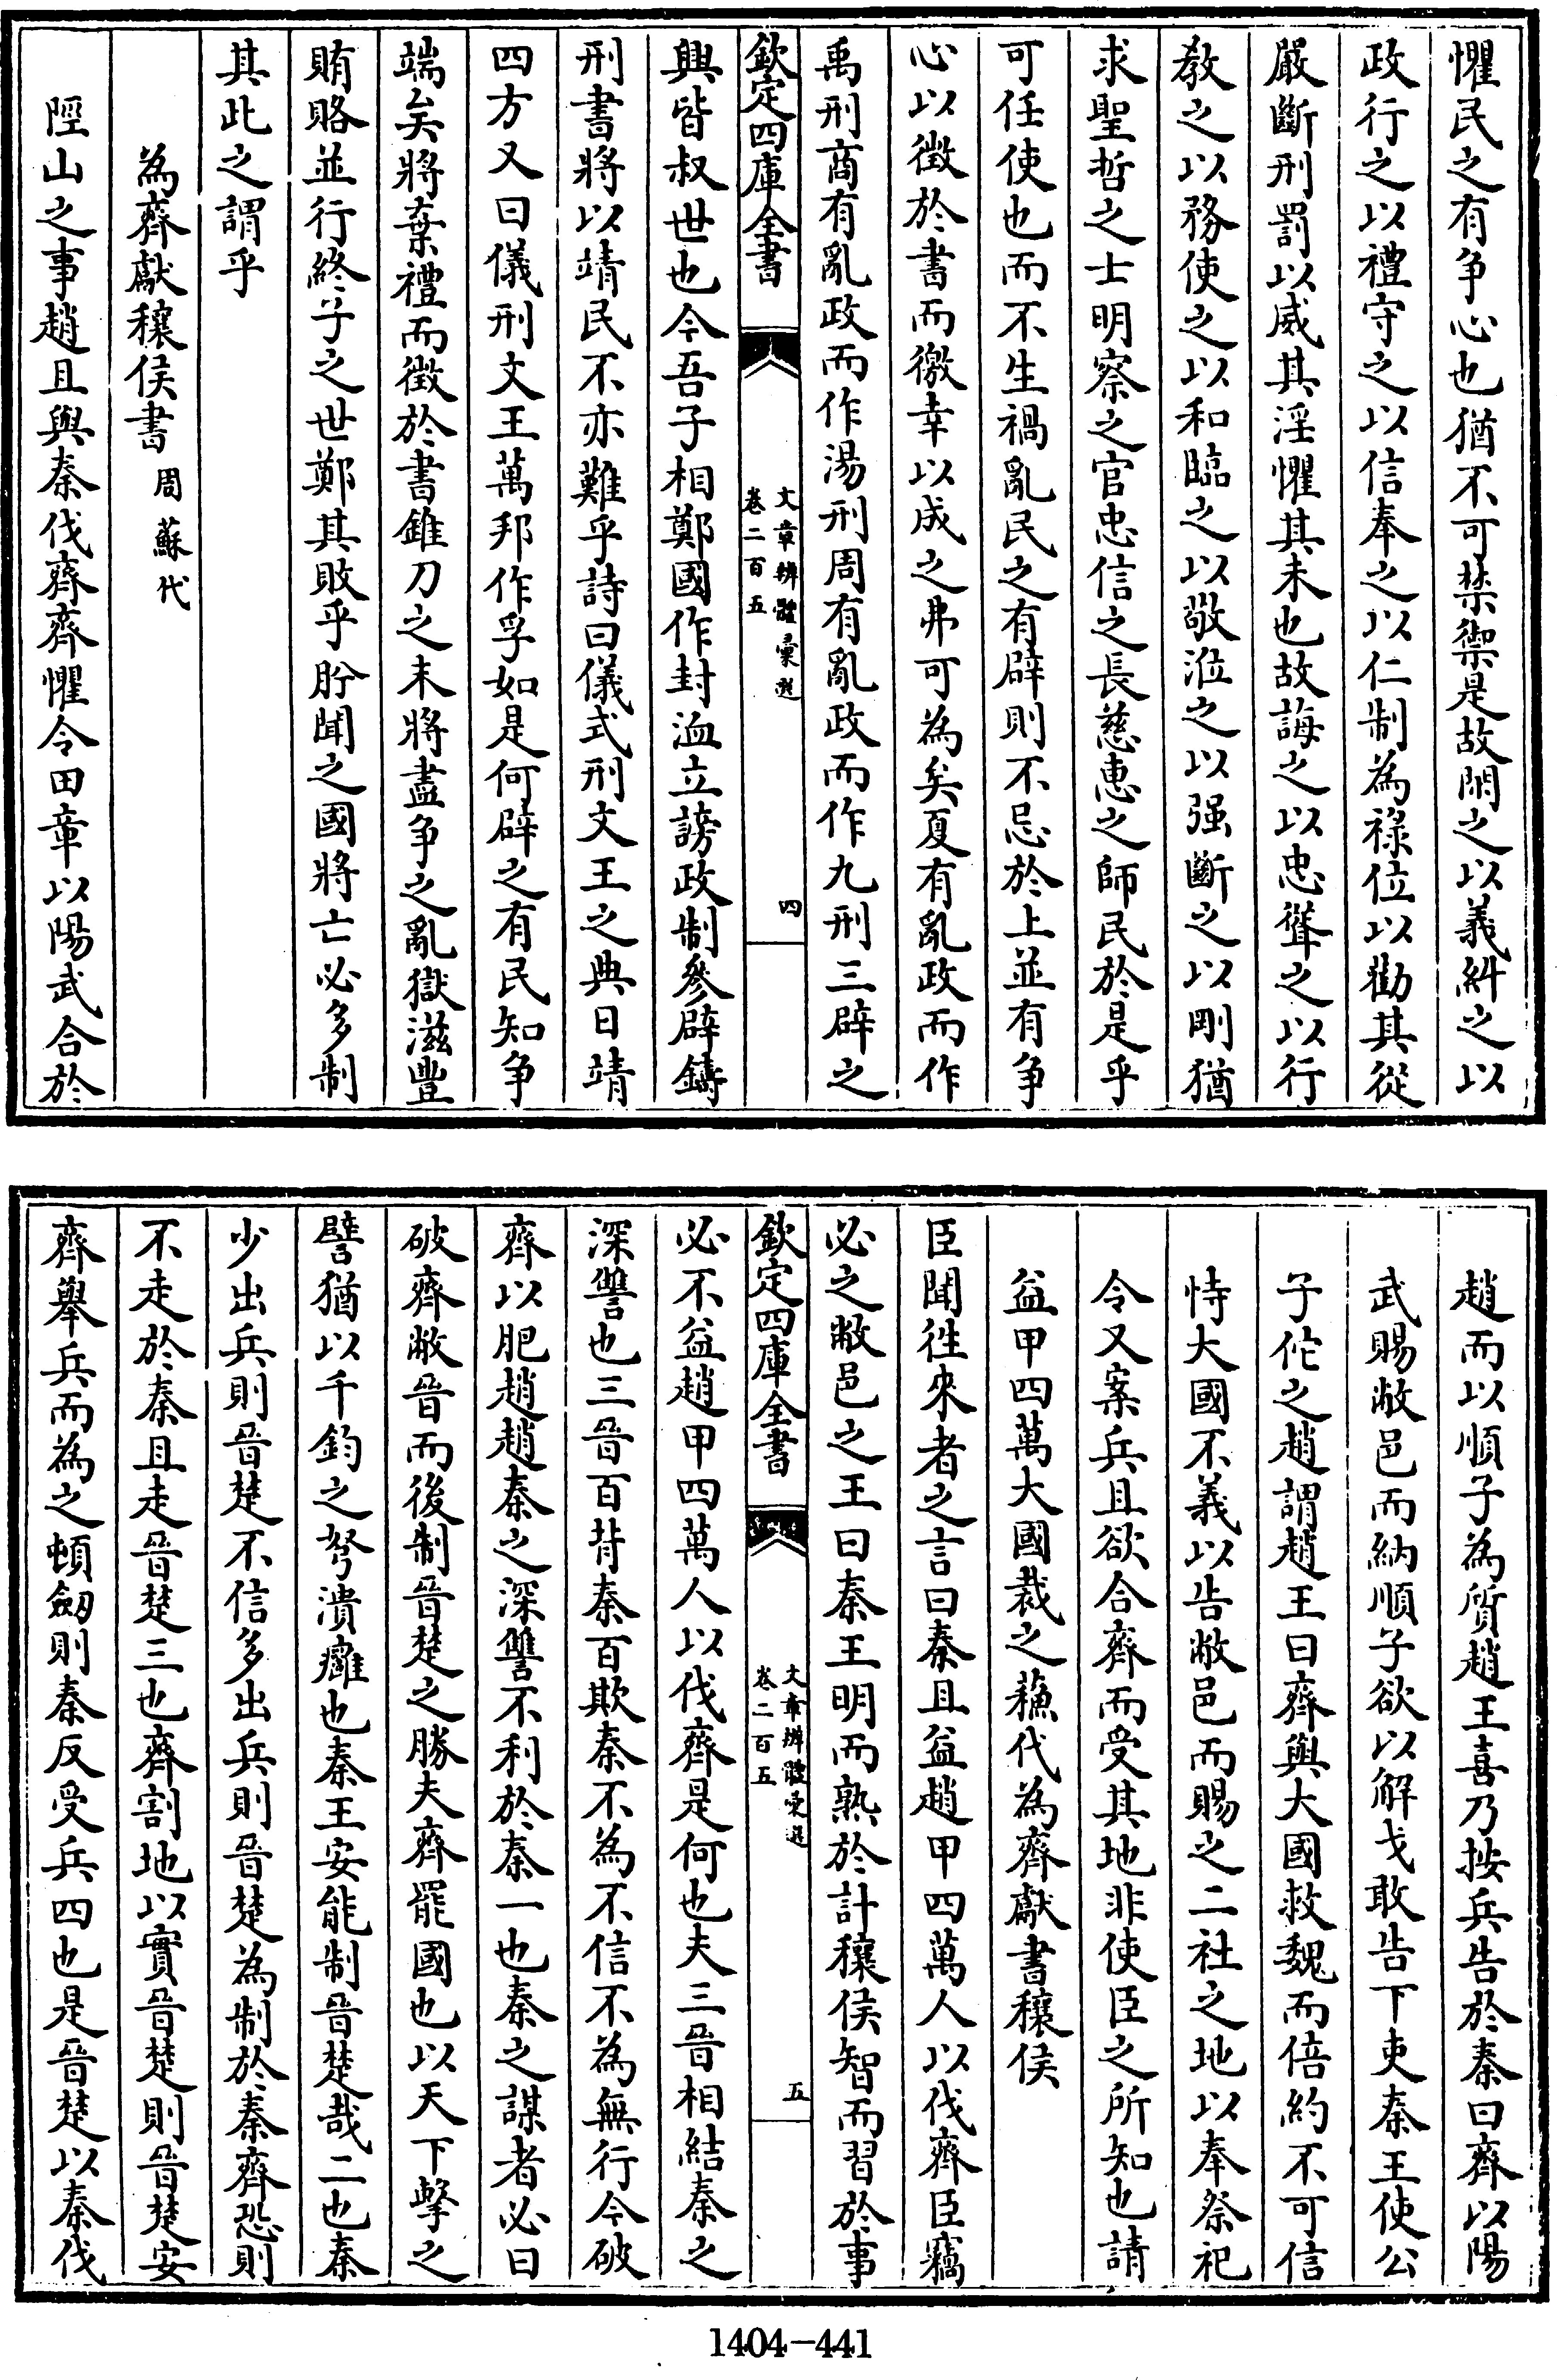 懼民之有争心也猶不可禁禦是故閑之以義糾之以
政行之以禮守之以信奉之以仁制為祿位以勸其從
嚴斷刑罰以威其淫懼其未也故誨之以忠聳之以行
教之以務使之以和臨之以敬涖之以强斷之以剛猶
求聖哲之士明察之官忠信之長慈惠之師民於是乎
可任使也而不生禍亂民之有辟則不忌於上並有争
心以徵於書而徼幸以成之弗可為矣夏有亂政而作
禹刑商有亂政而作湯刑周有亂政而作九刑三辟之
欽定四庫全書
文章辨體彙選
卷二百五
四
興皆叔世也今吾子相鄭國作封洫立謗政制參辟鑄
刑書將以靖民不亦難乎詩曰儀式刑文王之典日靖
四方又曰儀刑文王萬邦作孚如是何辟之有民知争
端矣將棄禮而徵於書錐刀之末將盡争之亂獄滋豐
賄賂並行終子之世鄭其敗乎肸聞之國將亡必多制
其此之謂乎
為齊獻穰侯書 周蘇代
陘山之事趙且與秦伐齊齊懼令田章以陽武合於
趙而以順子為質趙王喜乃按兵告於秦曰齊以陽
武賜敝邑而納順子欲以解戈敢告下吏秦王使公
子佗之趙謂趙王曰齊與大國救魏而倍約不可信
恃大國不義以告敝邑而賜之二社之地以奉祭祀
令又案兵且欲合齊而受其地非使臣之所知也請
益甲四萬大國裁之蘓代為齊獻書穰侯
臣聞往來者之言曰秦且益趙甲四萬人以伐齊臣竊
必之敝邑之王曰秦王明而熟於計穰侯智而習於事
欽定四庫全書
文章辨體彙選
卷二百五
五
必不益趙甲四萬人以伐齊是何也夫三晉相結秦之
深讐也三晉百背秦百欺秦不為不信不為無行今破
齊以肥趙趙秦之深讐不利於秦一也秦之謀者必曰
破齊敝晉而後制晉楚之勝夫齊罷國也以天下擊之
譬猶以千鈞之弩潰癰也秦王安能制晉楚哉二也秦
少出兵則晉楚不信多出兵則晉楚為制於秦齊恐則
不走於秦且走晉楚三也齊割地以實晉楚則晉楚安
齊舉兵而為之頓劒則秦反受兵四也是晉楚以秦伐
1404-441